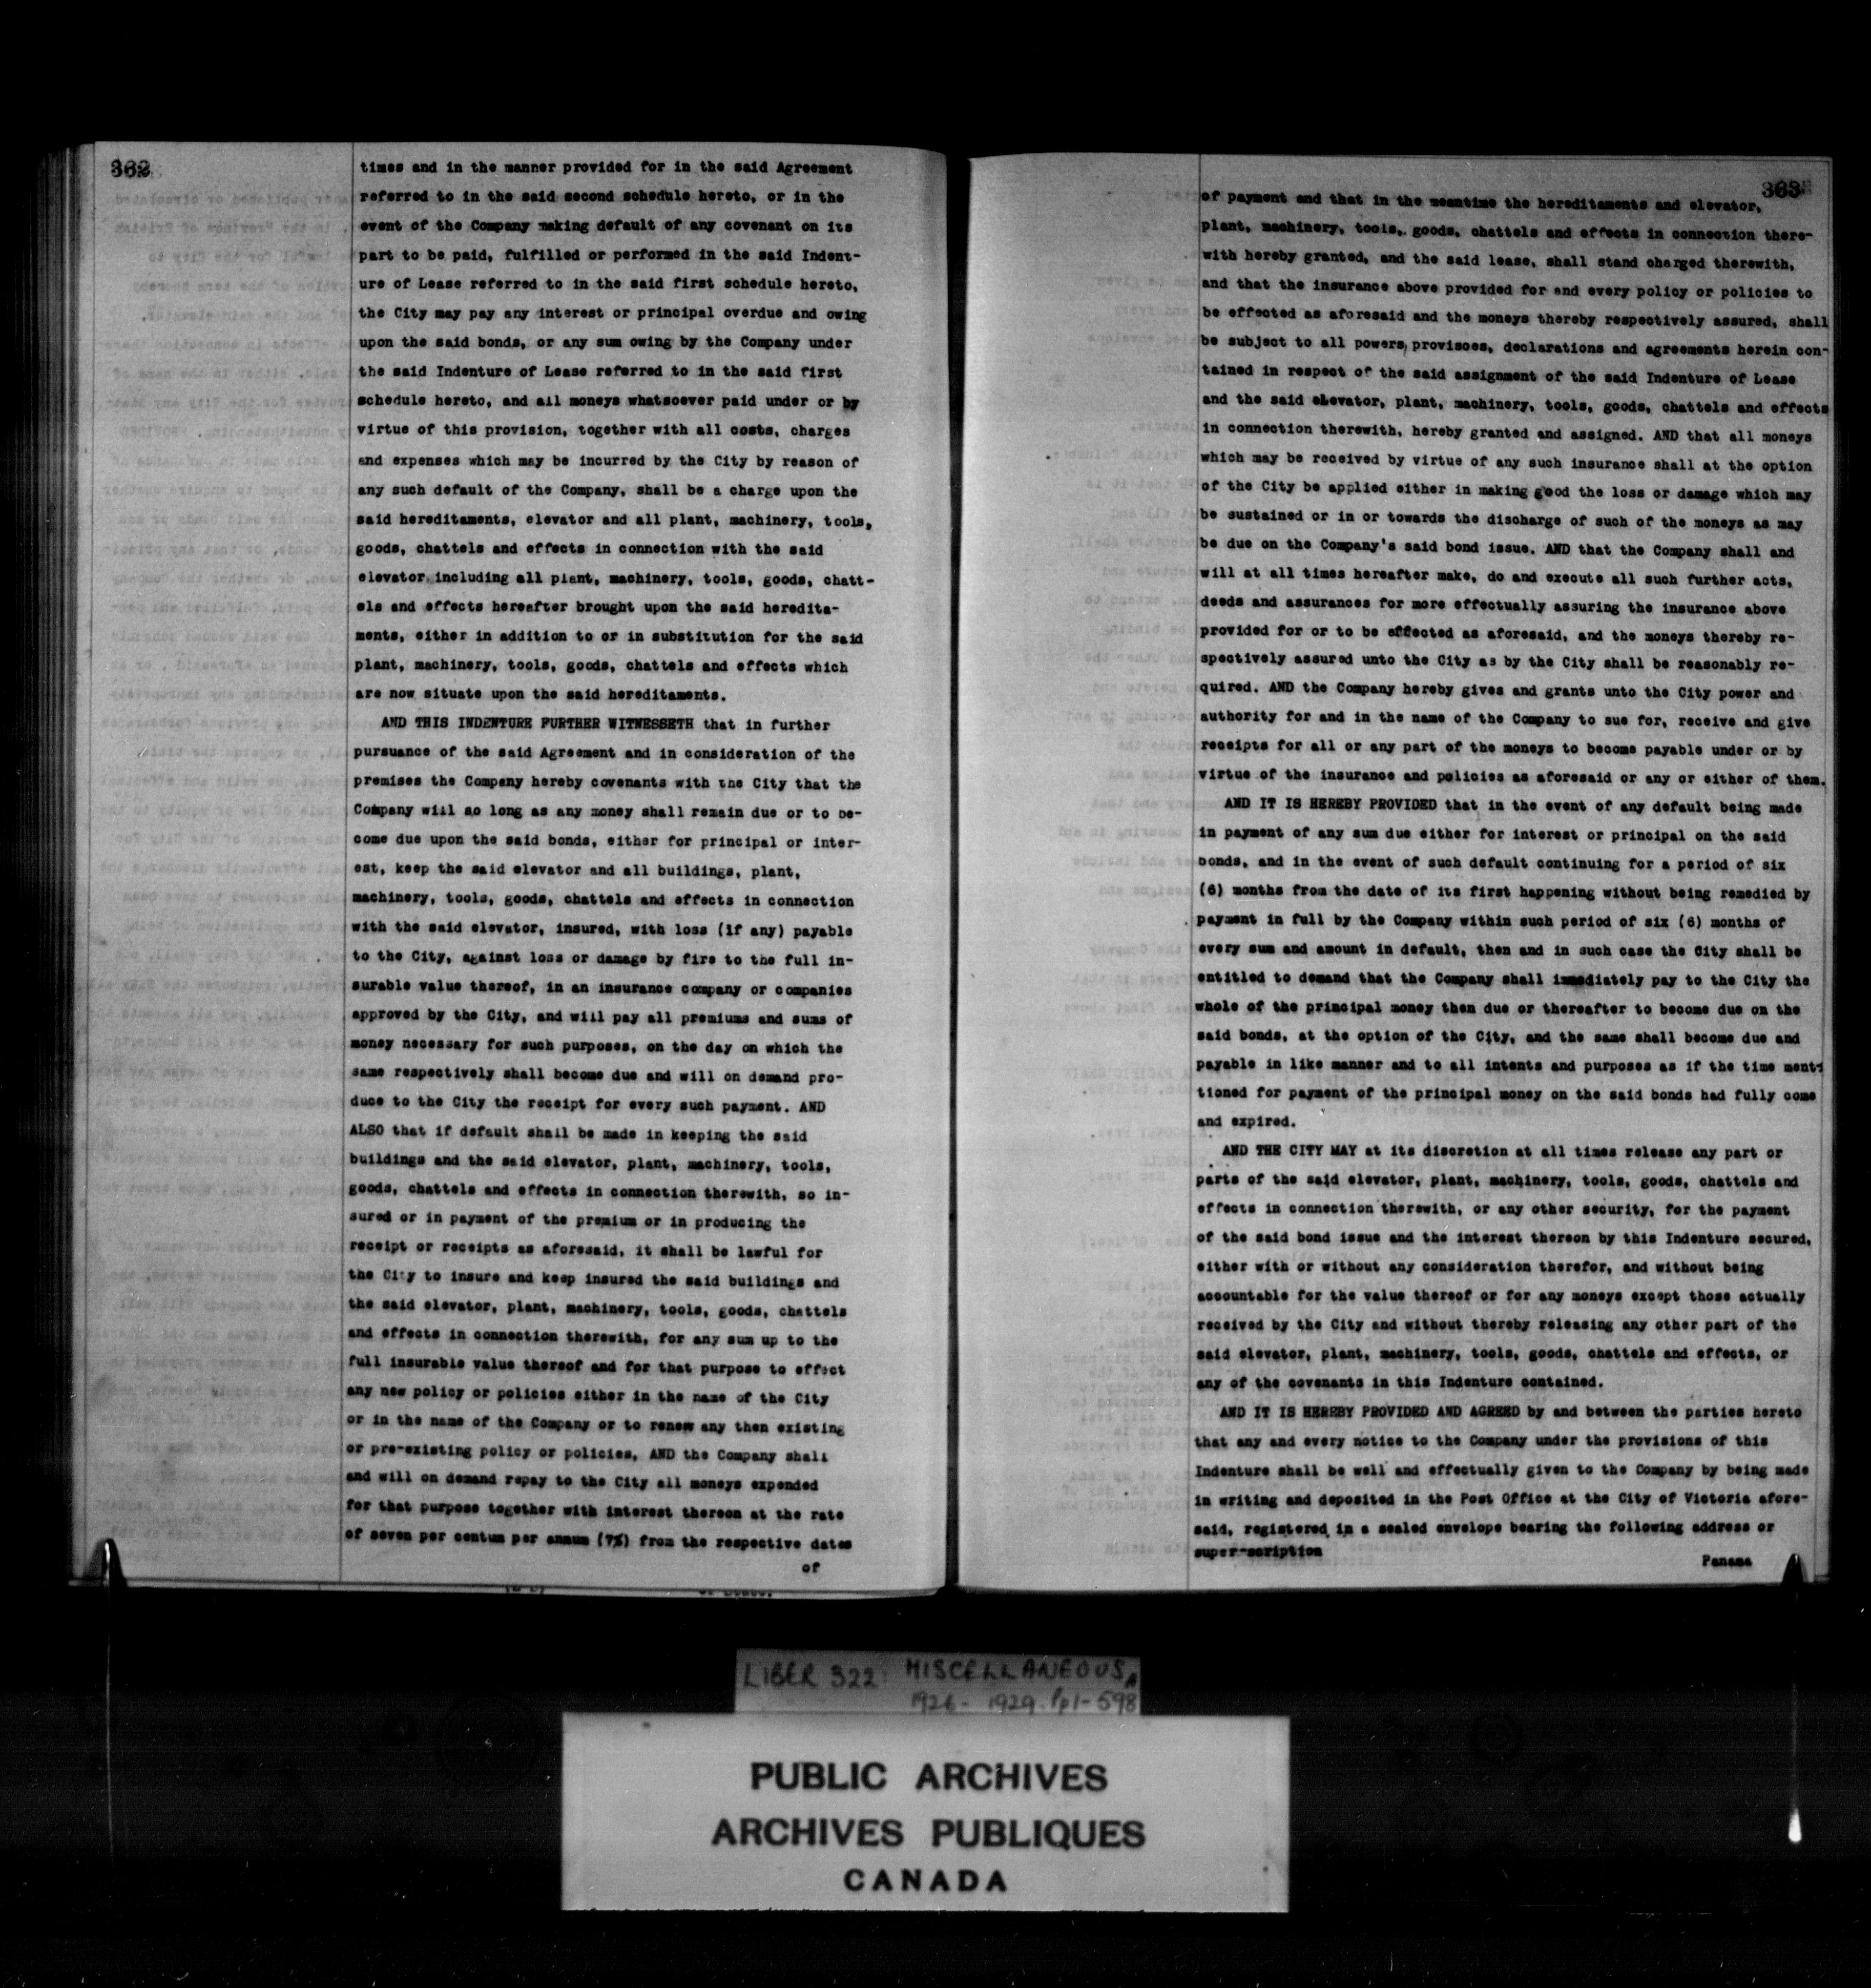 362
times and in the manner provided for in the said Agreement
referred to in the said second schedule hereto, or in the
event of the Company making default of any covenant on its
part to be paid, fulfilled or performed in the said Indent-
ure of Lease referred to in the said first schedule hereto,
the City may pay any interest or principal overdue and owing
upon the said bonds, or any sum owing by the Company under
the said Indenture of Lease referred to in the said first
schedule hereto, and all moneys whatsoever paid under or by
virtue of this provision, together with all costs, charges
and expenses which may be incurred by the City by reason of
any such default of the Company, shall be a charge upon the
said hereditaments, elevator and all plant, machinery, tools,
goods, chattels and effects in connection with the said
elevator including all plant, machinery, tools, goods, chatt-
els and effects hereafter brought upon the said heredita-
ments, either in addition to or in substitution for the said
plant, machinery, tools, goods, chattels and effects which
are now situate upon the said hereditaments.
AND THIS INDENTURE FURTHER WITNESSETH that in further
pursuance of the said Agreement and in consideration of the
premises the Company hereby covenants with the City that the
Company will so long as any money shall remain due or to be-
come due upon the said bonds, either for principal or inter-
est, keep the said elevator and all buildings, plant,
machinery, tools, goods, chattels and effects in connection
with the said elevator, insured, with loss (if any) payable
to the City, against loss or damage by fire to the full in-
surable value thereof, in an insurance company or companies
approved by the City, and will pay all premiums and sums of
money necessary for such purposes, on the day on which the
same respectively shall become due and will on demand pro-
duce to the City the receipt for every such payment. AND
ALSO that if default shall be made in keeping the said
buildings and the said elevator, plant, machinery, tools,
goods, chattels and effects in connection therewith, so in-
sured or in payment of the premium or in producing the
receipt or receipts as aforesaid, it shall be lawful for
the City to insure and keep insured the said buildings and
the said elevator, plant, machinery, tools, goods, chattels
and effects in connection therewith, for any sum up to the
full insurable value thereof and for that purpose to effect
any new policy or policies either in the name of the City
or in the name of the Company or to renew any then existing
or pre-existing policy or policies, AND the Company shall
and will on demand repay to the City all moneys expended
for that purpose together with interest thereon at the rate
of seven per centum per annum (7%) from the respective dates
of
363
of payment and that in the meantime the hereditaments and elevator,
plant, machinery, tools, goods, chattels and effects in connection there-
with hereby granted, and the said lease, shall stand charged therewith,
and that the insurance above provided for and every policy or policies to
be effected as aforesaid and the moneys thereby respectively assured, shall
be subject to all powers, provisoes, declarations and agreements herein con-
tained in respect of the said assignment of the said Indenture of Lease
and the said elevator, plant, machinery, tools, goods, chattels and effects
in connection therewith, hereby granted and assigned. AND that all moneys
which may be received by virtue of any such insurance shall at the option
of the City be applied either in making good the loss or damage which may
be sustained or in or towards the discharge of such of the moneys as may
be due on the Company's said bond issue. AND that the Company shall and
will at all times hereafter make, do and execute all such further acts,
deeds and assurances for more effectually assuring the insurance above
provided for or to be effected as aforesaid, and the moneys thereby re-
spectively assured unto the City as by the City shall be reasonably re-
quired. AND the Company hereby gives and grants unto the City power and
authority for and in the name of the Company to sue for, receive and give
receipts for all or any part of the moneys to become payable under or by
virtue of the insurance and policies as aforesaid or any or either of them.
AND IT IS HEREBY PROVIDED that in the event of any default being made
in payment of any sum due either for interest or principal on the said
bonds, and in the event of such default continuing for a period of six
(6) months from the date of its first happening without being remedied by
payment in full by the Company within such period of six (6) months of
every sum and amount in default, then and in such case the City shall be
entitled to demand that the Company shall immediately pay to the City the
whole of the principal money then due or thereafter to become due on the
said bonds, at the option of the City, and the same shall become due and
payable in like manner and to all intents and purposes as if the time ment-
tioned for payment of the principal money on the said bonds had fully come
and expired.
AND THE CITY MAY at its discretion at all times release any part or
parts of the said elevator, plant, machinery, tools, goods, chattels and
effects in connection therewith, or any other security, for the payment
of the said bond issue and the interest thereon by this Indenture secured,
either with or without any consideration therefor, and without being
accountable for the value thereof or for any moneys except those actually
received by the City and without thereby releasing any other part of the
said elevator, plant, machinery, tools, goods, chattels and effects, or
any of the covenants in this Indenture contained.
AND IT IS HEREBY PROVIDED AND AGREED by and between the parties hereto
that any and every notice to the Company under the provisions of this
Indenture shall be well and effectually given to the Company by being made
in writing and deposited in the Post Office at the City of Victoria afore-
said, registered in a sealed envelope bearing the following address or
super-scription
Panama
LIBER 322 MISCELLANEOUS,
1926 - 1929. Pp 1-598
PUBLIC ARCHIVES
ARCHIVES PUBLIQUES
CANADA